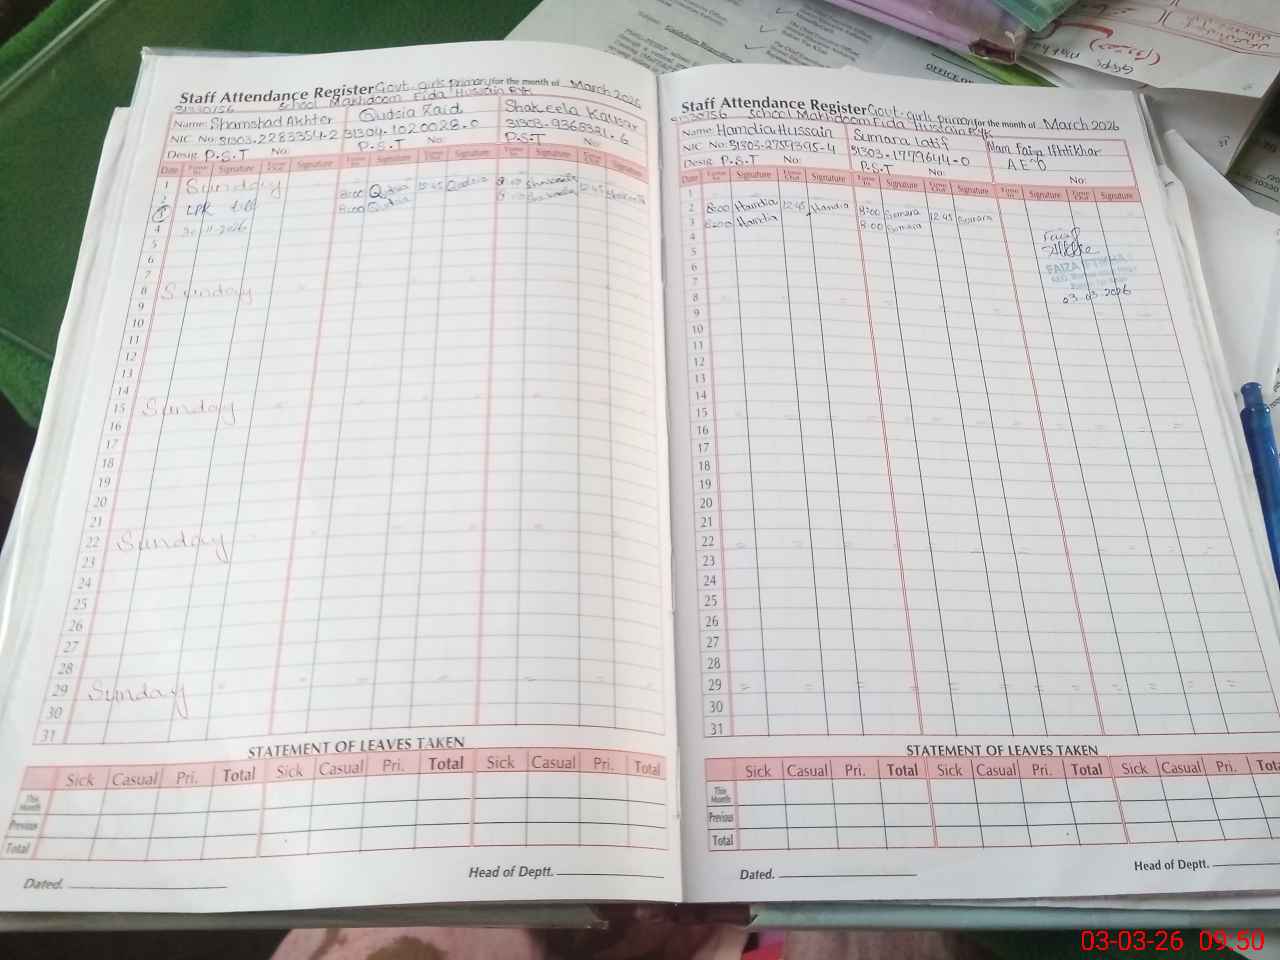 Staff Attendance Register Govt. girls primary for the month of March 2026
31330156 School Makhdoom Fida Hussain RYK
Name: Shamshad Akhter Qudsia Zaid Shakeela Kausar
NIC No: 31303-2283354-2 31304-1020028-0 31303-9365321-6
Desig P.S.T No: P.S.T No: P.S.T No:
Date Time In Signature Time Out Signature Time In Signature Time Out Signature Time In Signature Time Out Signature
1 Sunday
2 LPR till 8:00 Qudsia 12:45 Qudsia 8:00 Shakeela 12:45 Shakeela
3 8:00 Qudsia 8:00 Shakeela
4 30-11-2026
5
6
7
8 Sunday
9
10
11
12
13
14
15 Sunday
16
17
18
19
20
21
22 Sunday
23
24
25
26
27
28
29 Sunday
30
31
STATEMENT OF LEAVES TAKEN
Sick Casual Pri. Total Sick Casual Pri. Total Sick Casual Pri. Total
This Month
Previous
Total
Dated. Head of Deptt.
Staff Attendance Register Govt. girls primary for the month of March 2026
31330156 School Makhdoom Fida Hussain RYK
Name: Hamdia Hussain Sumara latif Mam Faiza Iftikhar
NIC No: 31303-2759395-4 31303-1779644-0 A.E.O
Desig P.S.T No: P.S.T No:
Date Time In Signature Time Out Signature Time In Signature Time Out Signature Time In Signature Time Out Signature
1
2 8:00 Hamdia 12:45 Hamdia 8:00 Sumara 12:45 Sumara
3 8:00 Hamdia 8:00 Sumara
4
5
6
7
FAIZA IFTIKHAR
8 03.03.2026
9
10
11
12
13
14
15
16
17
18
19
20
21
22
23
24
25
26
27
28
29
30
31
STATEMENT OF LEAVES TAKEN
Sick Casual Pri. Total Sick Casual Pri. Total Sick Casual Pri. Total
This Month
Previous
Total
Dated. Head of Deptt.
03-03-26 09:50